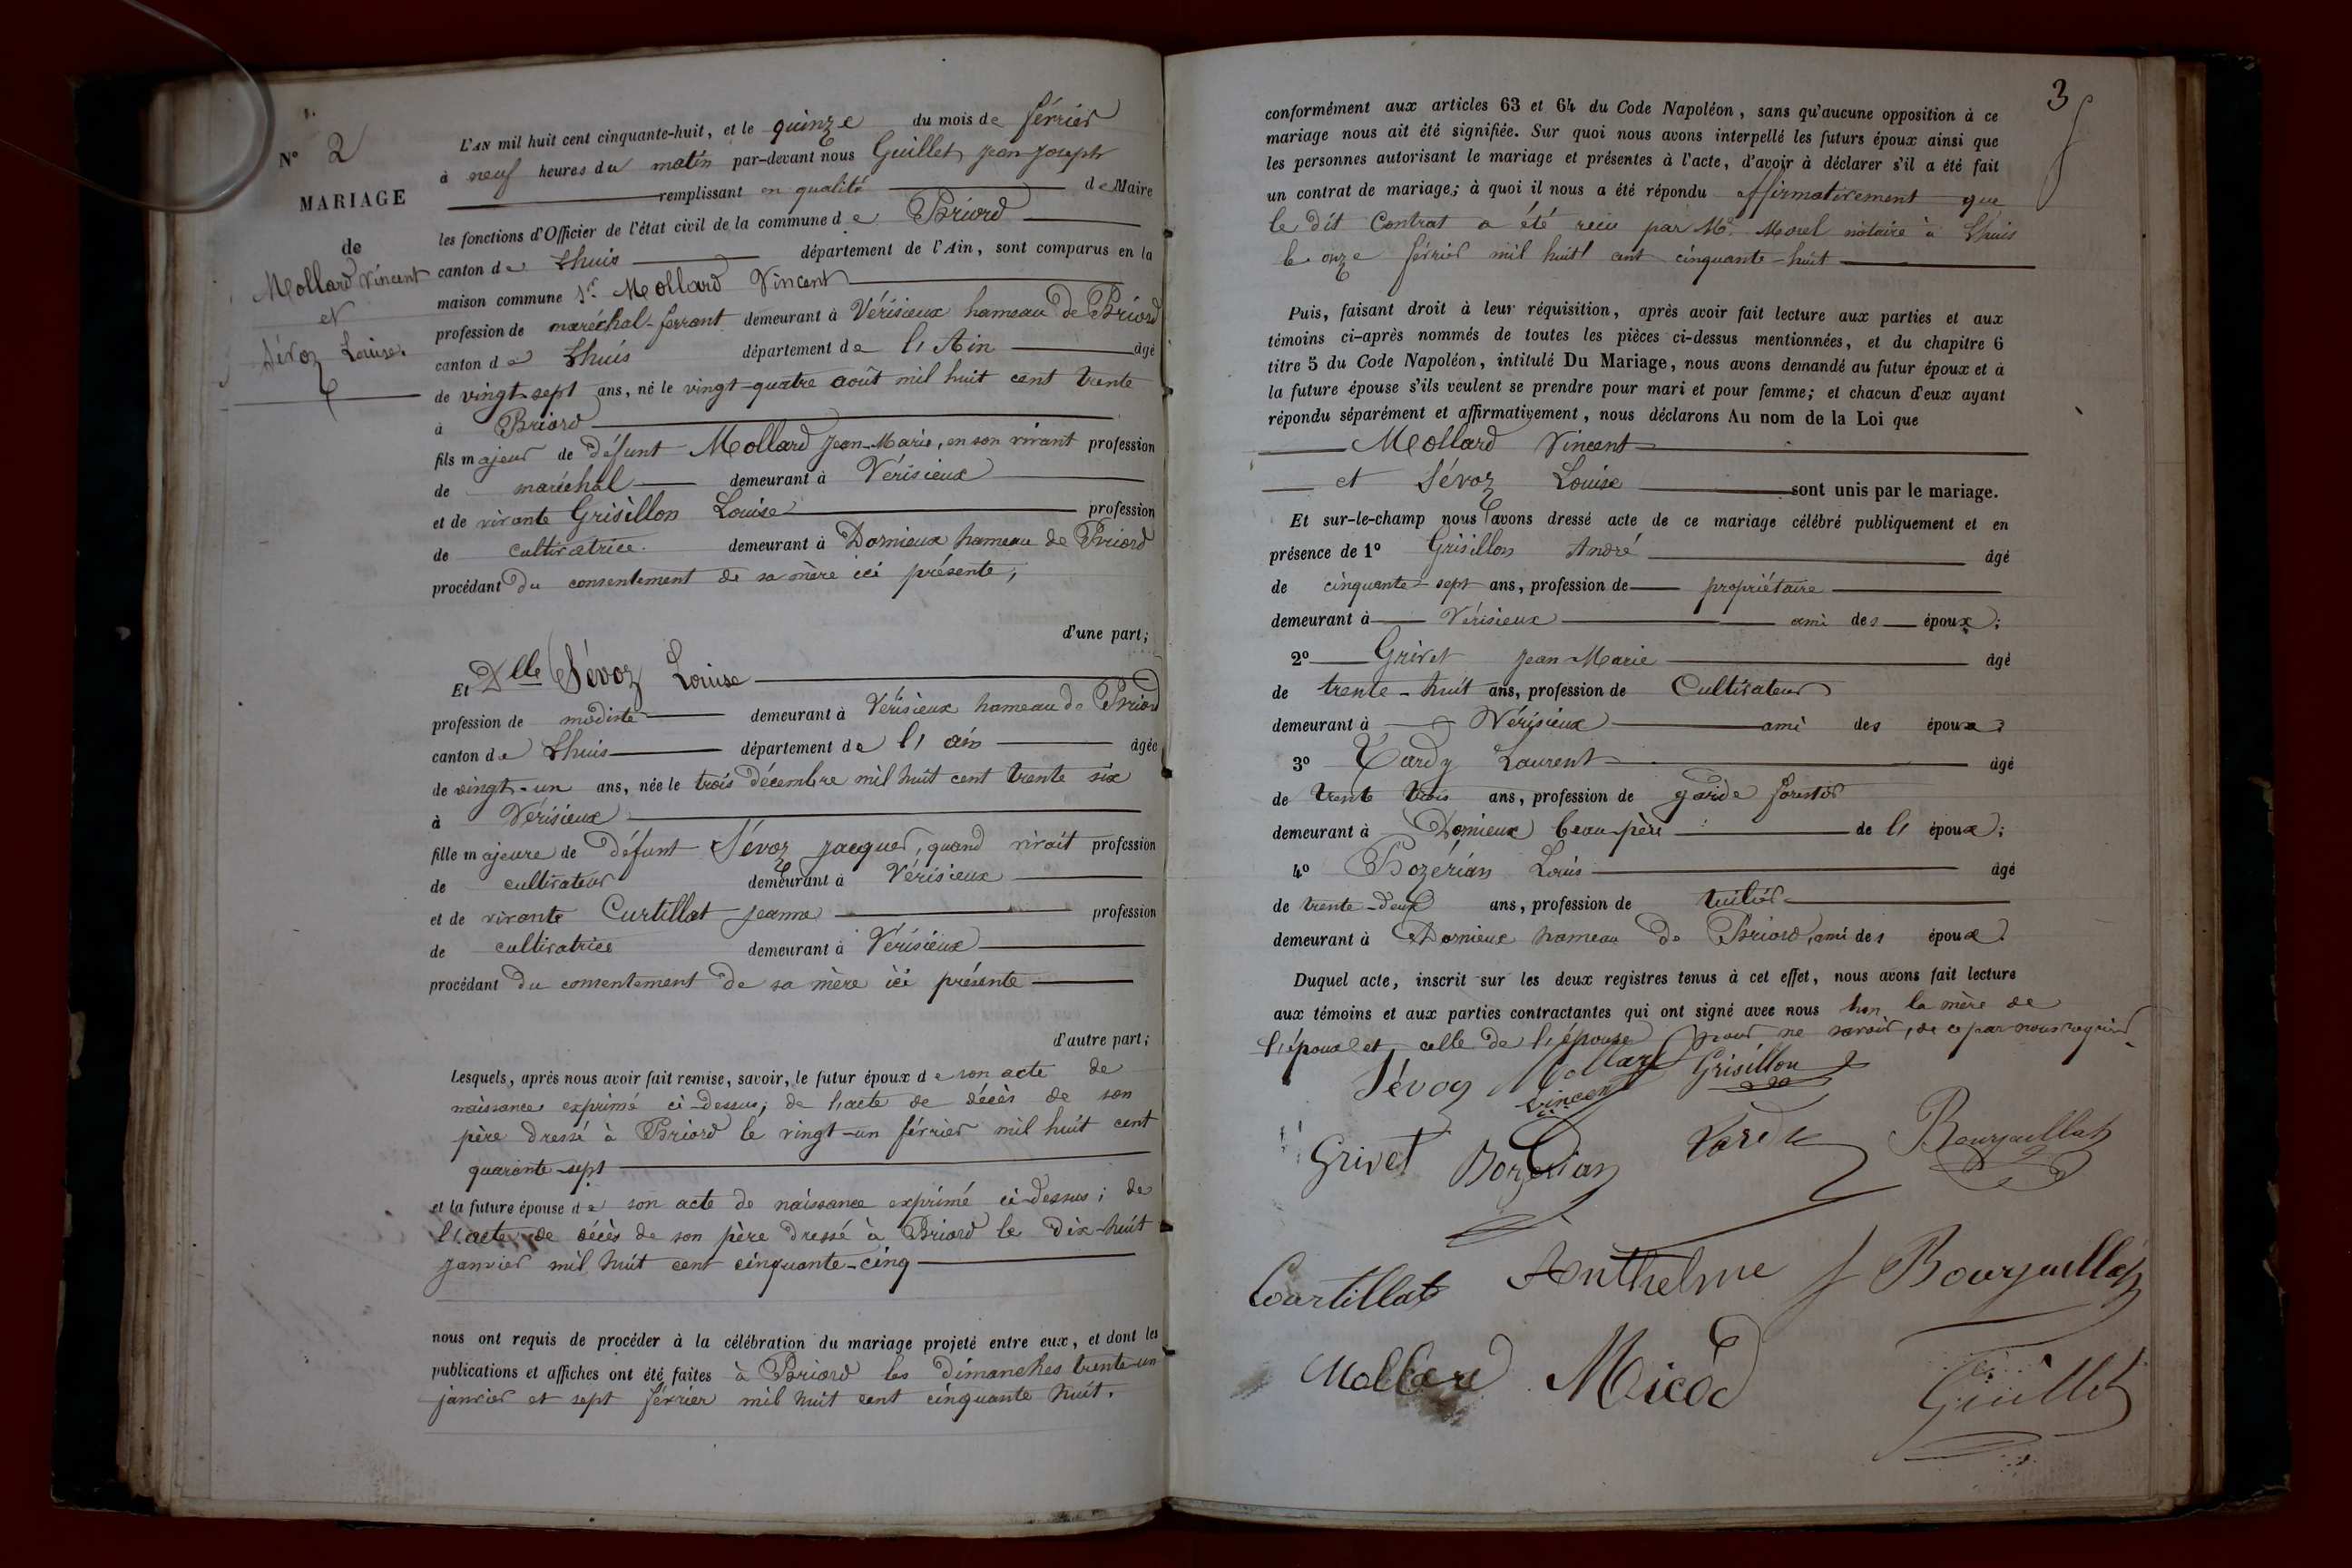 N° 2
MARIAGE
de
Mollard Vincent
et
Sévoz Louise.
L'AN mil huit cent cinquante-huit, et le quinze du mois de février
à neuf heures du matin par-devant nous Guillet Jean Joseph
remplissant en qualité de Maire
les fonctions d'Officier de l'état civil de la commune de Briord
canton de Lhuis département de l'Ain, sont comparus en la
maison commune Sr. Mollard Vincent
profession de maréchal-ferrant demeurant à Vérisieux hameau de Briord
canton de Lhuis département de l'Ain âgé
de vingt-sept ans, né le vingt-quatre août mil huit cent trente
à Briord
fils majeur de défunt Mollard Jean-Marie, en son vivant profession
de maréchal demeurant à Vérisieux
et de vivante Grisillon Louise profession
de cultivatrice. demeurant à Dornieux hameau de Briord
procédant du consentement de sa mère ici présente;
d'une part;
Et Dlle Sévoz Louise
profession de modiste demeurant à Vérisieux hameau de Briord
canton de Lhuis département de l'ain âgée
de vingt-un ans, née le trois décembre mil huit cent trente six
à Vérisieux
fille majeure de défunt Sévoz Jacques, quand vivait profession
de cultivateur demeurant à Vérisieux
et de vivante Curtillat Jeanne profession
de cultivatrice demeurant à Vérisieux
procédant du consentement de sa mère ici présente
d'autre part;
Lesquels, après nous avoir fait remise, savoir, le futur époux de son acte de
naissance exprimé ci-dessus; de l'acte de décès de son
père dressé à Briord le vingt-un février mil huit cent
quarante-sept
et la future épouse de son acte de naissance exprimé ci-dessus; de
l'acte de décès de son père dressé à Briord le dix-huit
janvier mil huit cent cinquante-cinq
nous ont requis de procéder à la célébration du mariage projeté entre eux, et dont les
publications et affiches ont été faites à Briord les dimanches trente-un
janvier et sept février mil huit cent cinquante huit.
3
conformément aux articles 63 et 64 du Code Napoléon, sans qu'aucune opposition à ce
mariage nous ait été signifiée. Sur quoi nous avons interpellé les futurs époux ainsi que
les personnes autorisant le mariage et présentes à l'acte, d'avoir à déclarer s'il a été fait
un contrat de mariage; à quoi il nous a été répondu affirmativement que
le dit Contrat a été reçu par Me. Morel notaire à Lhuis
le onze février mil huit cent cinquante-huit
Puis, faisant droit à leur réquisition, après avoir fait lecture aux parties et aux
témoins ci-après nommés de toutes les pièces ci-dessus mentionnées, et du chapitre 6
titre 5 du Code Napoléon, intitulé Du Mariage, nous avons demandé au futur époux et à
la future épouse s'ils veulent se prendre pour mari et pour femme; et chacun d'eux ayant
répondu séparément et affirmativement, nous déclarons Au nom de la Loi que
Mollard Vincent
et Sévoz Louise sont unis par le mariage.
Et sur-le-champ nous avons dressé acte de ce mariage célébré publiquement et en
présence de 1° Grisillon André âgé
de cinquante-sept ans, profession de propriétaire
demeurant à Vérisieux ami des époux;
2° Grivet Jean Marie âgé
de trente-huit ans, profession de Cultivateur
demeurant à Vérisieux ami des époux;
3° Tardy Laurent âgé
de trente trois ans, profession de garde forestier
demeurant à Dornieux beau-père de l' époux;
4° Bozérian Louis âgé
de trente-deux ans, profession de tuilier
demeurant à Dornieux hameau de Briord, ami des époux.
Duquel acte, inscrit sur les deux registres tenus à cet effet, nous avons fait lecture
aux témoins et aux parties contractantes qui ont signé avec nous hon la mère de
l'époux et celle de l'épouse pour ne savoir, de ce par nous requises
Sévoz Mollard Vincent Grisillon
Grivet Bozerian Tardy Bourjaillat
Courtillat Anthelme J Bourjaillat
Mollard Micod Guillet